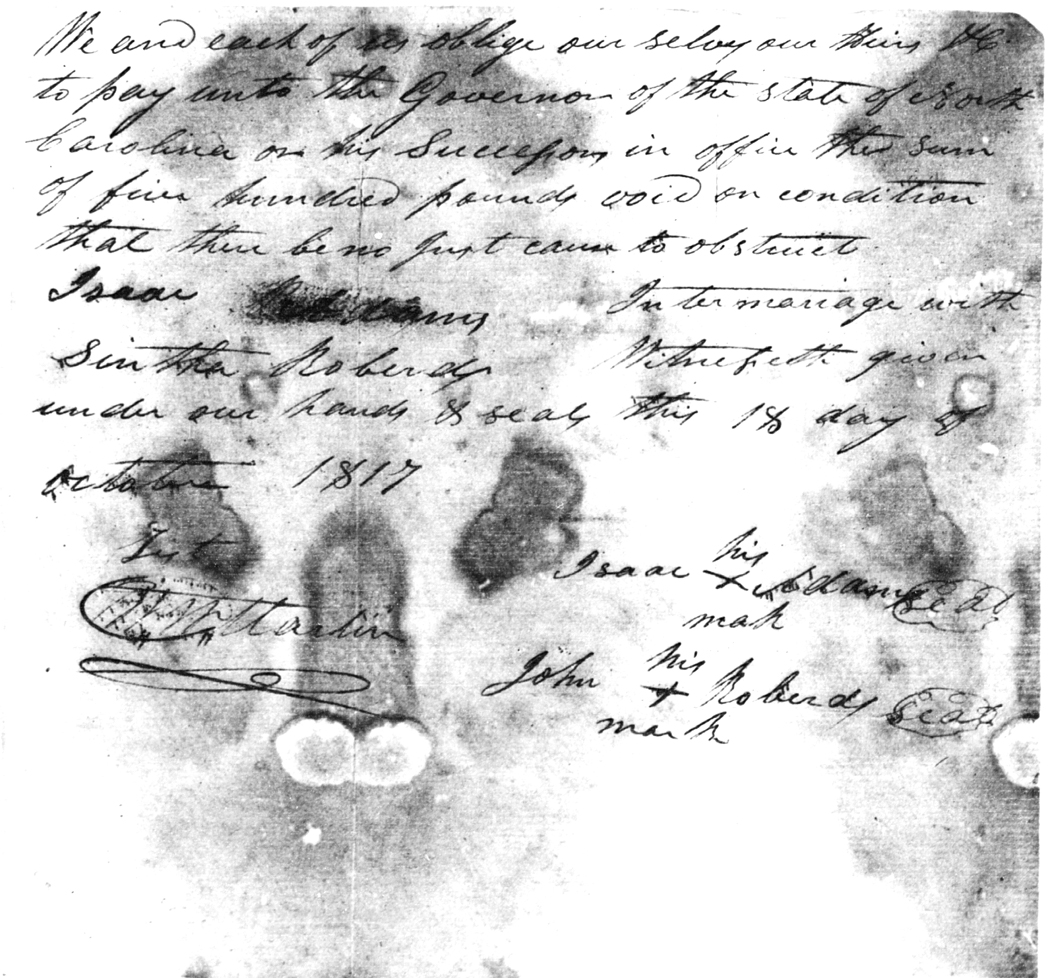 We and each of us oblige our selvs our Heirs &C
to pay unto the Governor of the state of North
Carolina or his Successors in office the sum
of five hundred pounds void on condition
that there be no Just cause to obstruct
Isaac Addams Intermariage with
Sintha Roberds Witnesseth given
under our hands & seals this 18 day of
october 1817
Test
Martin
Isaac his + Addams Seal
mark
John his + Roberds Seal
mark